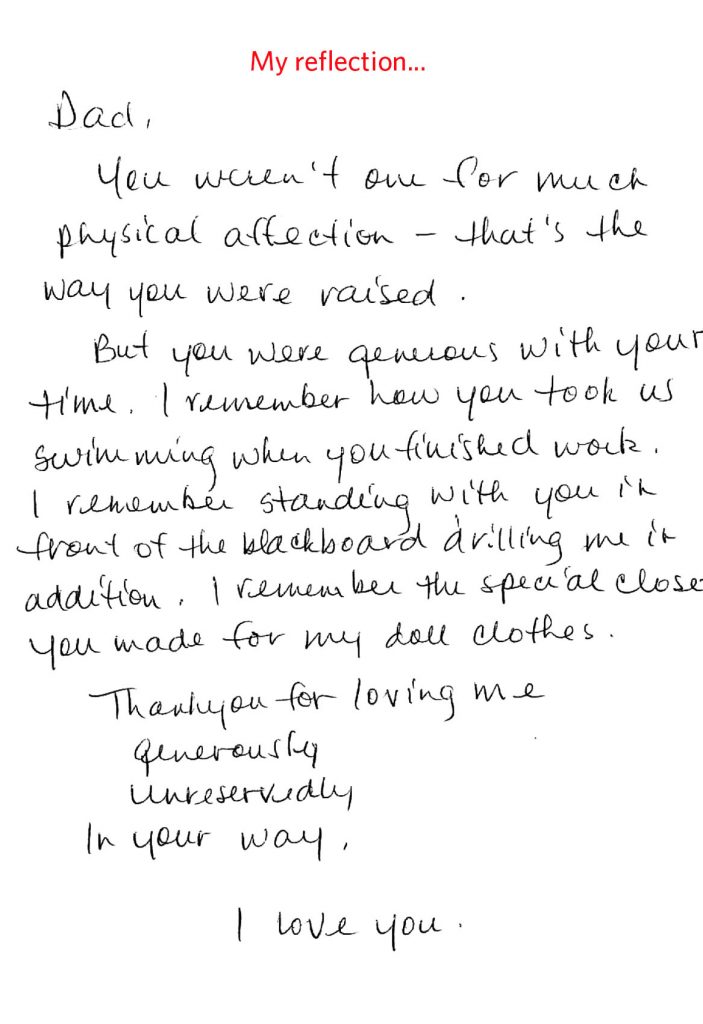 My reflection...
Dad,
You weren't one for much
physical affection – that's the
way you were raised.
But you were generous with your
time. I remember how you took us
swimming when you finished work.
I remember standing with you in
front of the blackboard drilling me in
addition. I remember the special close
you made for my doll clothes.
Thankyou for loving me
generously
unreservedly
In your way.
I love you.